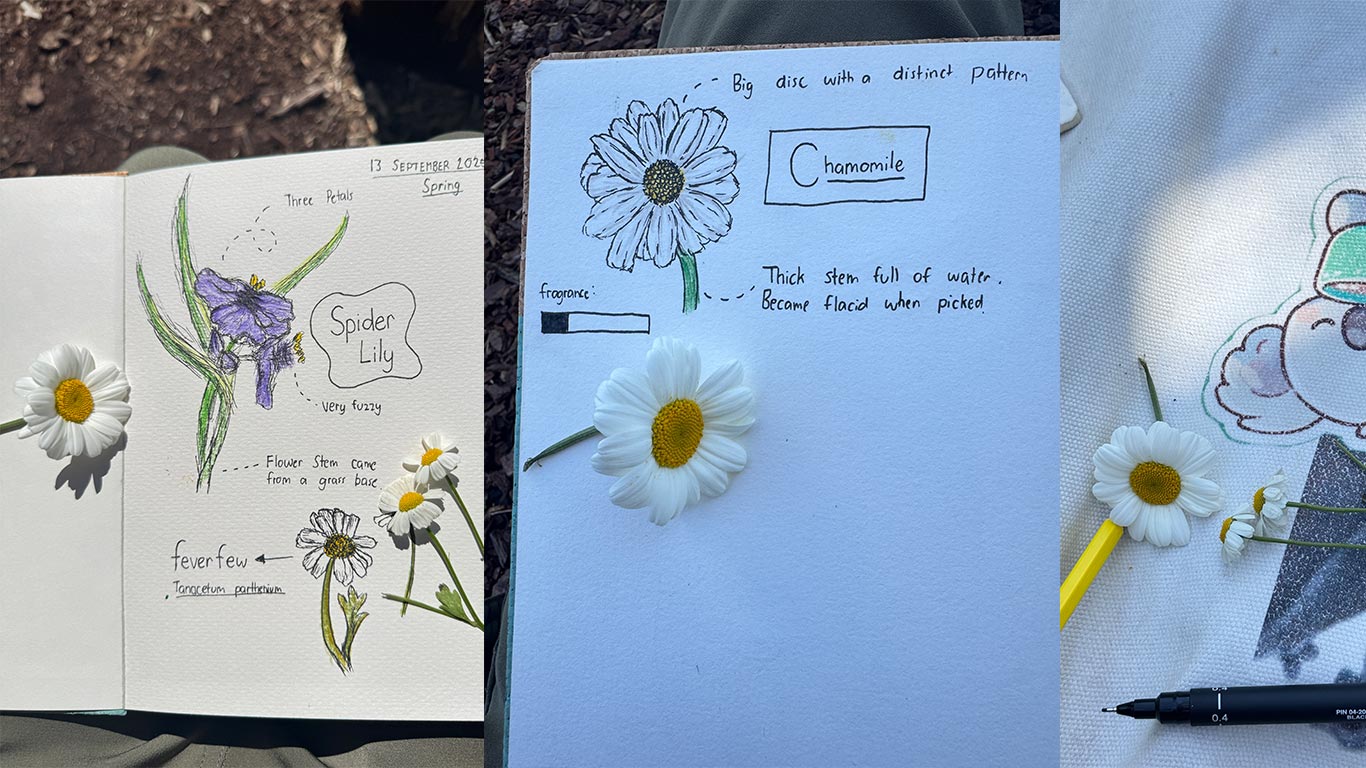 13 SEPTEMBER 202
Spring
Three Petals
Spider
Lily
Very fuzzy
Flower stem came
from a grass base.
feverfew
Tanacetum parthenium
Big disc with a distinct pattern
Chamomile
Thick stem full of water.
Became flacid when picked.
fragrance:
0.4
PIN 04-20
BLACK